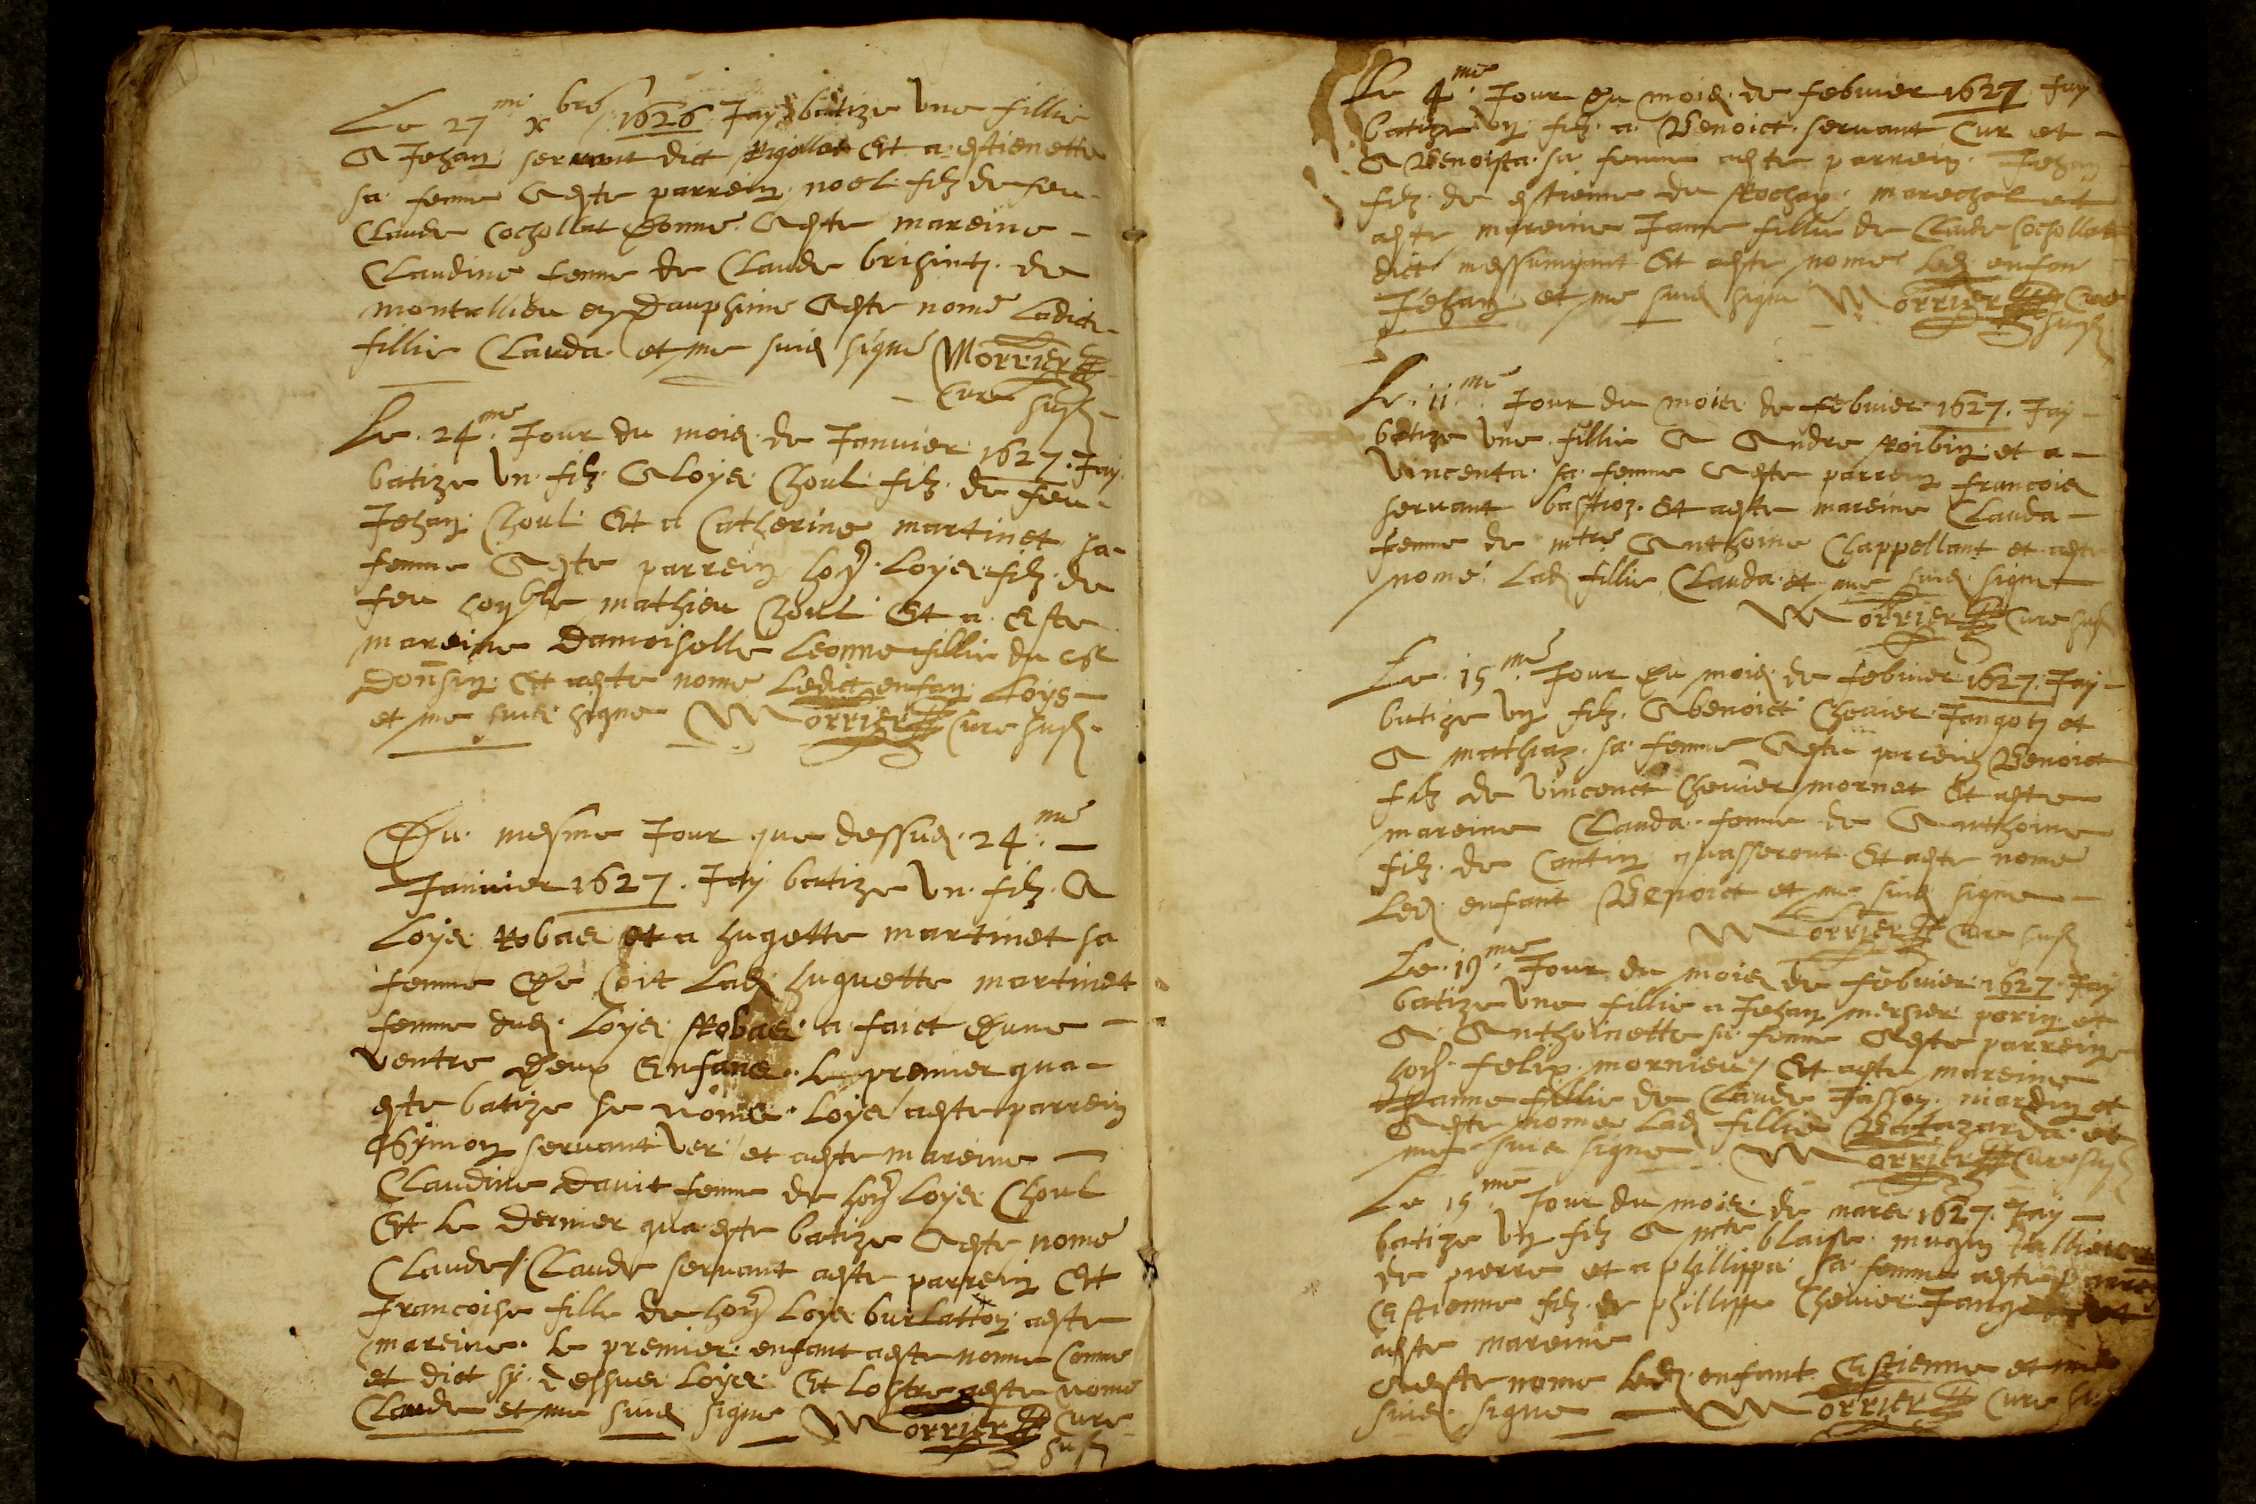 Le 27me xbre 1626 Jay batize une fillie
a Jehan servant dict Et a estienette
sa femme a este parrein noel filz de feu
Claude Cochollat Donne a este mareine
Claudine femme de Claude de
montallieu en Dauphine a este nome Ladicte
fillie Clauda et me suis signe Morrier
Cure susd
Le 24me Jour du mois de Janvier 1627 Jay
batize un filz a Loys Choul filz de feu
Jehan Choul Et a Catherine martinet sa
femme a este parrein hon Loys filz de
feu honble mathieu Choul Et a este
mareine Damoiselle Leonne fillie du
Et a este nome Ledict enfan Loys
et me suis signe Morrier Cure susd
Du mesme Jour que dessus 24me
Janvier 1627 Jay batize un filz a
Loys Robas et a hugette martinet sa
femme De Coit Lad huguette martinet
femme dud Loys Robas a faict Dune
ventre Deux Enfans Le premier qua
este batize se nome Loys a este parrein
Symon servant ver et a este mareine
Claudine Davit femme de hon Loys Choul
Et le Dernier qua este batize a este nome
Claude Claude servant a este parrein Et
francoise fille de hon Loys burlatton a este
mareine Le premier enfant a este nomme Comme
et dict sy dessus Loys Et Lostre a este nome
Claude et me suis signe Morrier Cure
susd
Le 4me Jour Du mois de febvier 1627 Jay
batize un filz a Benoict servant Cur et
a Benoista sa femme a este parrein Jehan
filz de estienne du Rochay marechal et
a este mareine Jane fillie de Claude Cochollat
dict Et a este nome Led enfan
Jehan et me suis signe Morrier Cure
susd
Le 11me Jour du mois de febvier 1627 Jay
batize une fillie a Andre Roibin et a
vincenta sa femme a este parrein francois
servant bastroz Et a este mareine Clauda
femme de mtre Anthoine Chappellant et a este
nome Lad fillie Clauda et me suis signe
Morrier Cure susd
Le 15me Jour Du mois de febvier 1627 Jay
batize un filz a benoict Chevier Jangot et
a mathiaz sa femme a este parrein Benoict
filz de vincenct Chevier mornet Et a este
mareine Clauda femme de Anthoine
filz de Cantin quasseront Et a este nome
Led enfant Benoict et me suis signe
Morrier Cure susd
Le 19me Jour du mois de febvier 1627 Jay
batize une fillie a Jehan mersier porin et
a Anthoinette sa femme a este parrein
hon felix mornieu Et a este mareine
Jeanne fillie de Claude Jasson mardin et
a este nome Lad fillie Batazarda et
me suis signe Morrier Cure susd
Le 15me Jour du mois de mars 1627 Jay
batize un filz a mtre blaise mugin
de pierre et a phillippa sa femme a este parrein
Estienne filz de phillippe Chevier et
a este mareine
a este nome Led enfant Estienne et me
suis signe Morrier Cure